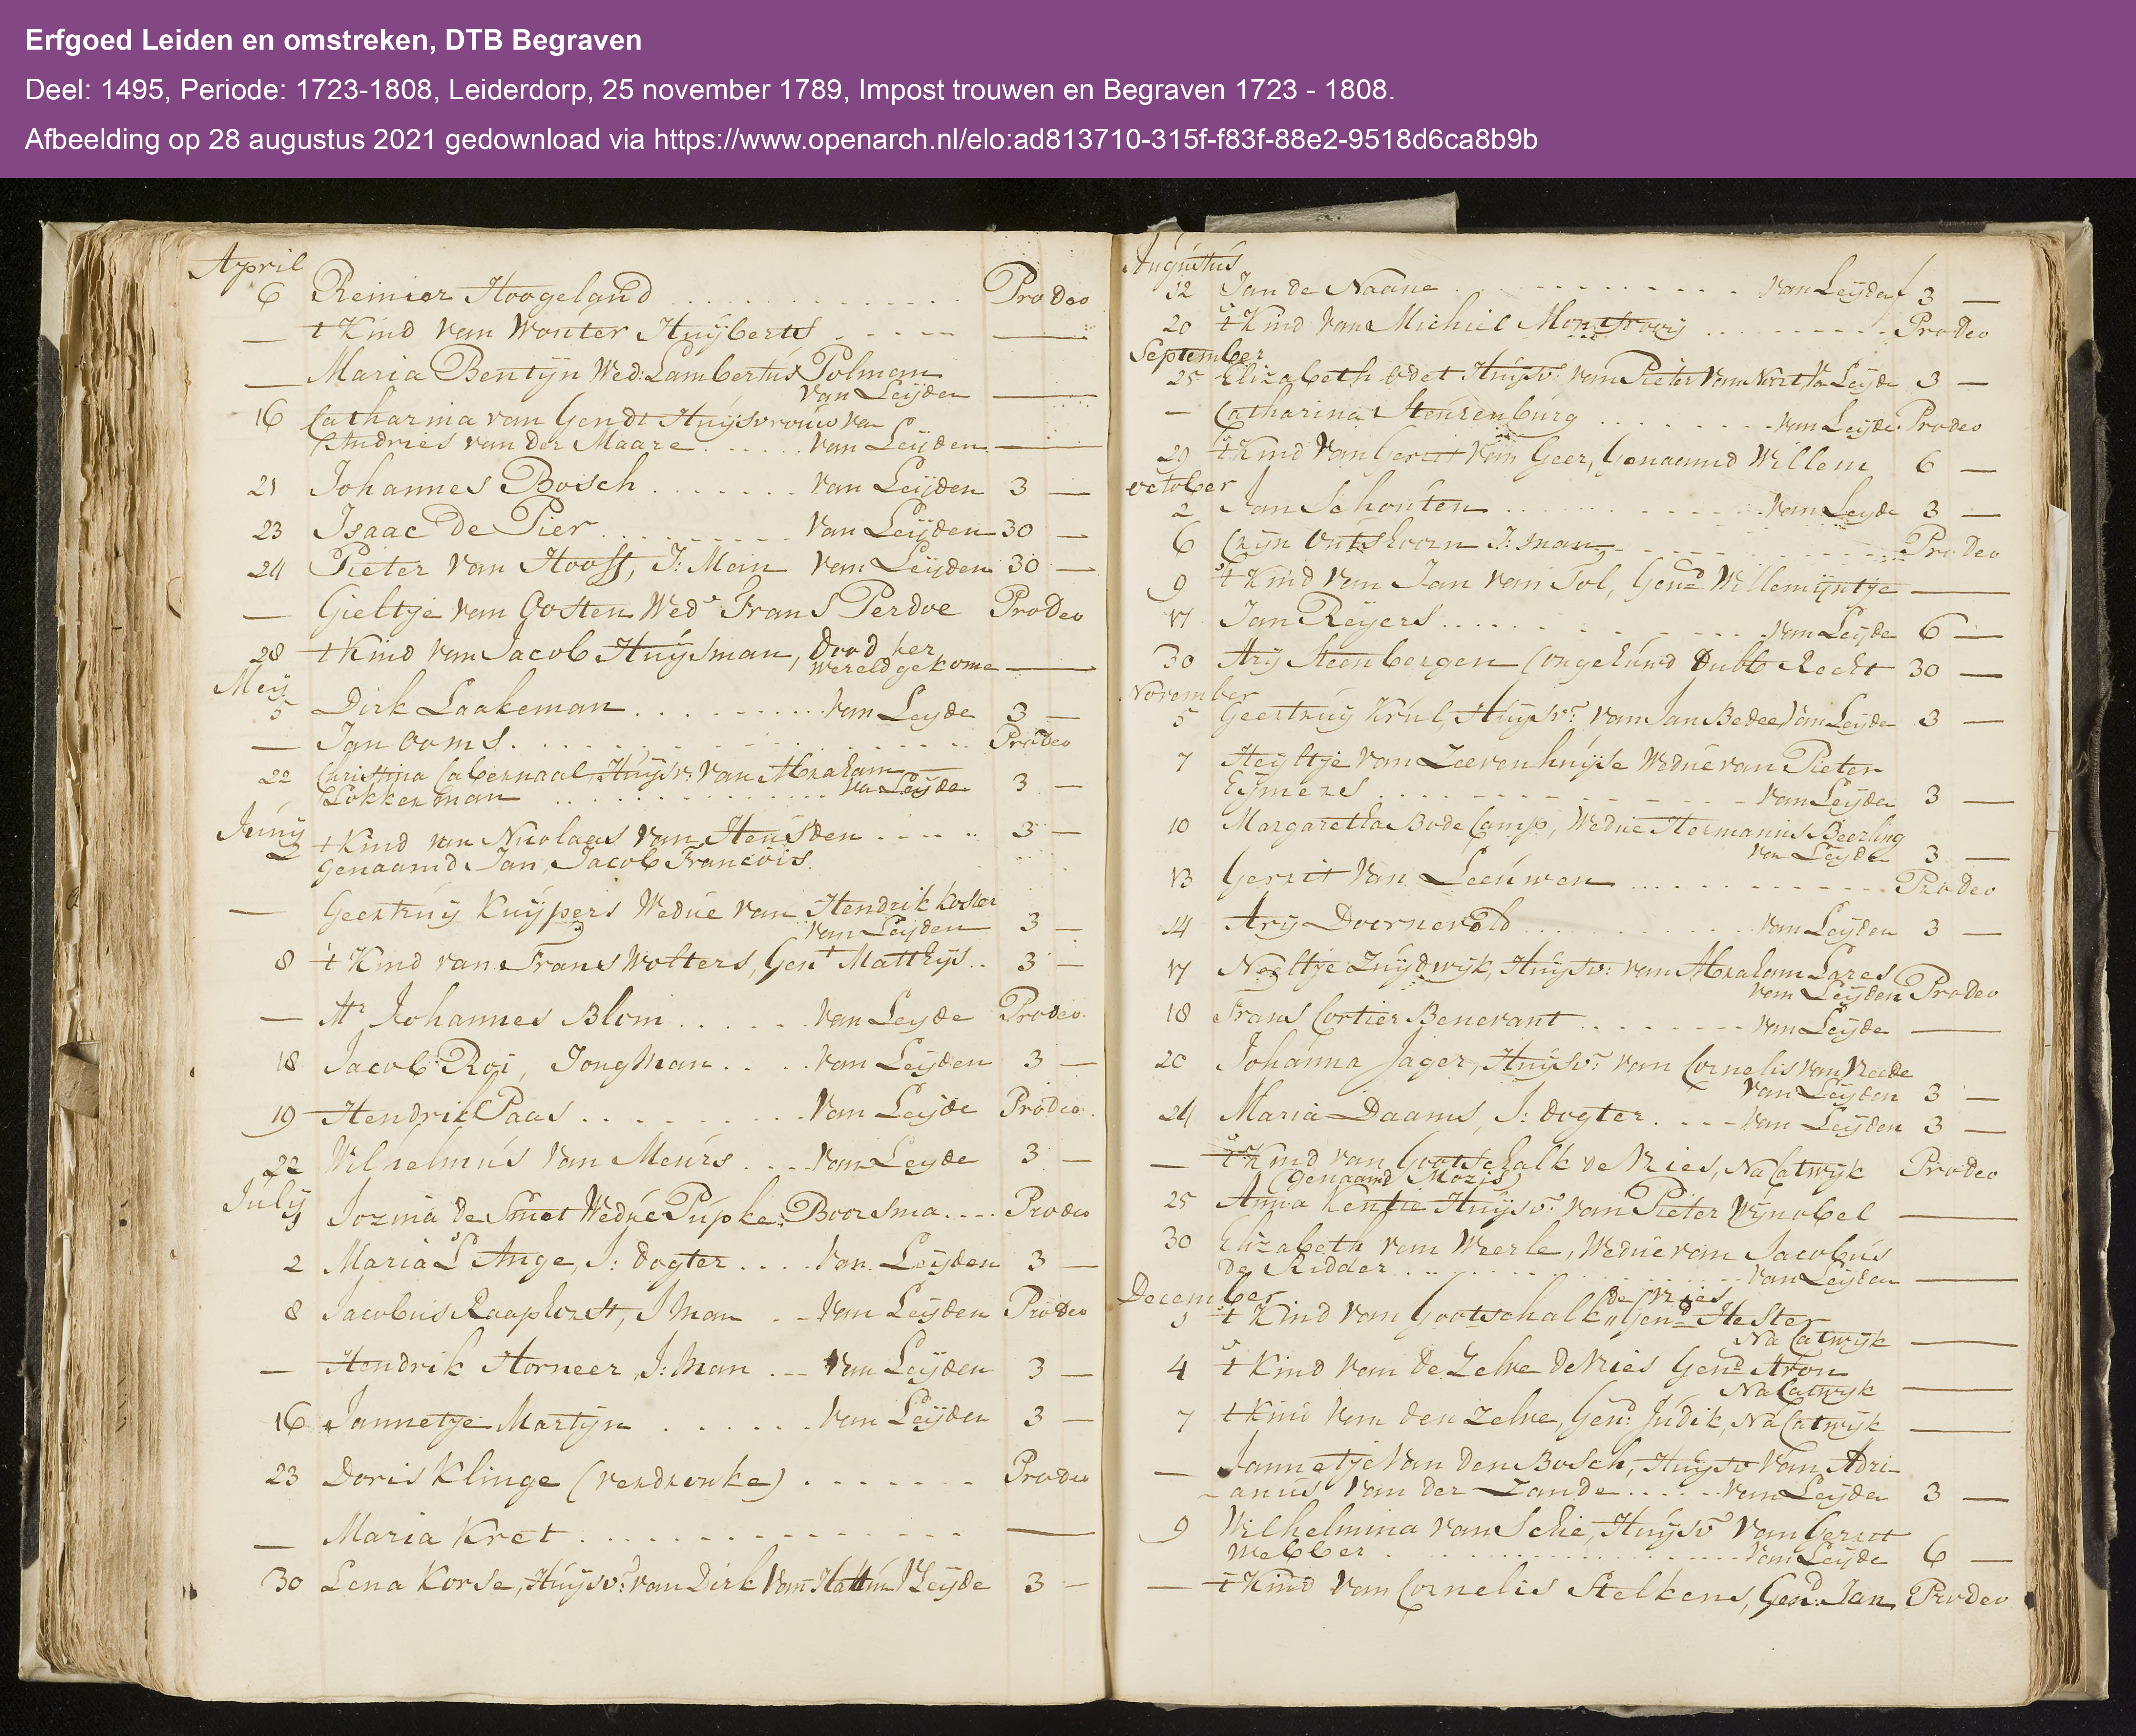 Erfgoed Leiden en omstreken, DTB Begraven
Deel: 1495, Periode: 1723-1808, Leiderdorp, 25 november 1789, Impost trouwen en Begraven 1723 - 1808.
Afbeelding op 28 augustus 2021 gedownload via https://www.openarch.nl/elo:ad813710-315f-f83f-88e2-9518d6ca8b9b
April
6 Reinier Hoogeland ProDeo
— t Kind van Wouter Huÿberts —
— Maria Bentÿn Wed: Lambertus Polman
van Leÿden —
16 Catharina van Gendt Huÿsvrouw van
Andries van der Maare van Leÿden —
21 Johannes Bosch van Leÿden 3 —
23 Isaac De Pier van Leÿden 30 —
24 Pieter van Hooff, J: Man van Leÿden 30 —
— Gieltje van Oosten Wed.e Frans Perdoe ProDeo
28 t Kind van Jacob Huÿsman, Dood ter
wereld gekome —
Meÿ
5 Dirk Laakeman van Leÿde 3 —
— Jan Ooms ProDeo
22 Christina Cabernaal, Huÿsv: van Abraham
Lokkerman van Leÿde 3 —
Junÿ
2 t Kind van Nicolaas van Heusden 3 —
Genaamd Jan, Jacob Francois
— Geertruÿ Kuÿpers Wedue van Hendrik Koster
van Leÿden 3 —
8 't Kind van Frans Wolters, Gen.t Matthÿs 3 —
— Mr Johannes Blom van Leÿde Prodeo
18 Jacob Roi, Jongman van Leÿden 3 —
19 Hendrik Paas van Leÿde Prodeo
22 Wilhelmus van Meurs van Leÿde 3 —
Julÿ
1 Jozina de Smet Wedue Pupke Boorsma Prodeo
2 Maria L'Ange, J: dogter van Leÿden 3 —
8 Jacobus Raaphorst, J man van Leÿden Prodeo
— Hendrik Horneer, J: Man van Leÿden 3 —
16 Jannetje Martÿn van Leÿden 3 —
23 Doris Klinge (verdronke) Prodeo
— Maria Kret —
30 Lena Korse, Huÿsv.r van Dirk van Hattum V Leÿde 3 —
Augustus
12 Jan de Naane van Leÿden 3 —
20 't Kind van Michiel Montfrooÿ Prodeo
September
25 Elizabeth Huÿsv. van Pieter van Nort Va Leÿde 3 —
— Catharina Steurenburg van Leÿde Prodeo
29 't Kind van Gerrit van Geer, Genaamd Willem 6 —
October
2 Jan Schouten van Leÿde 3 —
6 Crÿn Outshoorn J: man ProDeo
9 't Kind van Jan van Tol, Gen.d Willemÿntje —
17 Jan Reÿers van Leÿde 6 —
30 Arÿ Steenbergen (ongehuwd Dubb Recht 30 —
November
5 Geertruÿ Krul, Huÿsv.r van Jan Bedee, van Leÿde 3 —
7 Heÿltje van Zeevenhuÿse Wedue van Pieter
Eÿmers van Leÿde 3 —
10 Margaretha Bode Camp, Wedue Hermanus Beerling
van Leÿde 3 —
13 Gerrit van Leeuwen Prodeo
14 Arÿ Doornevold van Leÿden 3 —
17 Neeltje Zuÿdwÿk, Huÿsv: van Abraham Lares
van Leÿden Prodeo
18 Frans Cortier Benerant van Leÿde —
20 Johanna Jager, Huÿsv.r van Cornelis van Reede
van Leÿden 3 —
24 Maria Daams, J: dogter van Leÿden 3 —
— 't Kind van Gootschalk de Vries, Na Catwÿk Prodeo
(Genaamd Mozis)
25 Anna Kentie Huÿsv.r van Pieter Wÿnobel —
30 Elizabeth van Weerle, Wedue van Jacobus
De Ridder van Leÿden —
December
de Vries
3 't Kind van Gootschalk " Gen.d Hester
Na Catwÿk —
4 't Kind van de Zelve de Vries Gen.d Aron
Na Catwÿk —
7 t Kind van den Zelve, Gen.d Judik, Na Catwÿk —
— Jannetje van Den Bosch, Huÿsv van Adri-
anus van der Zande van Leÿden 3 —
9 Wilhelmina van Schie, Huÿsv.r van Gerrit
Webber van Leÿde 6 —
— 't Kind van Cornelis Stelkens, Gen.d Jan Prodeo